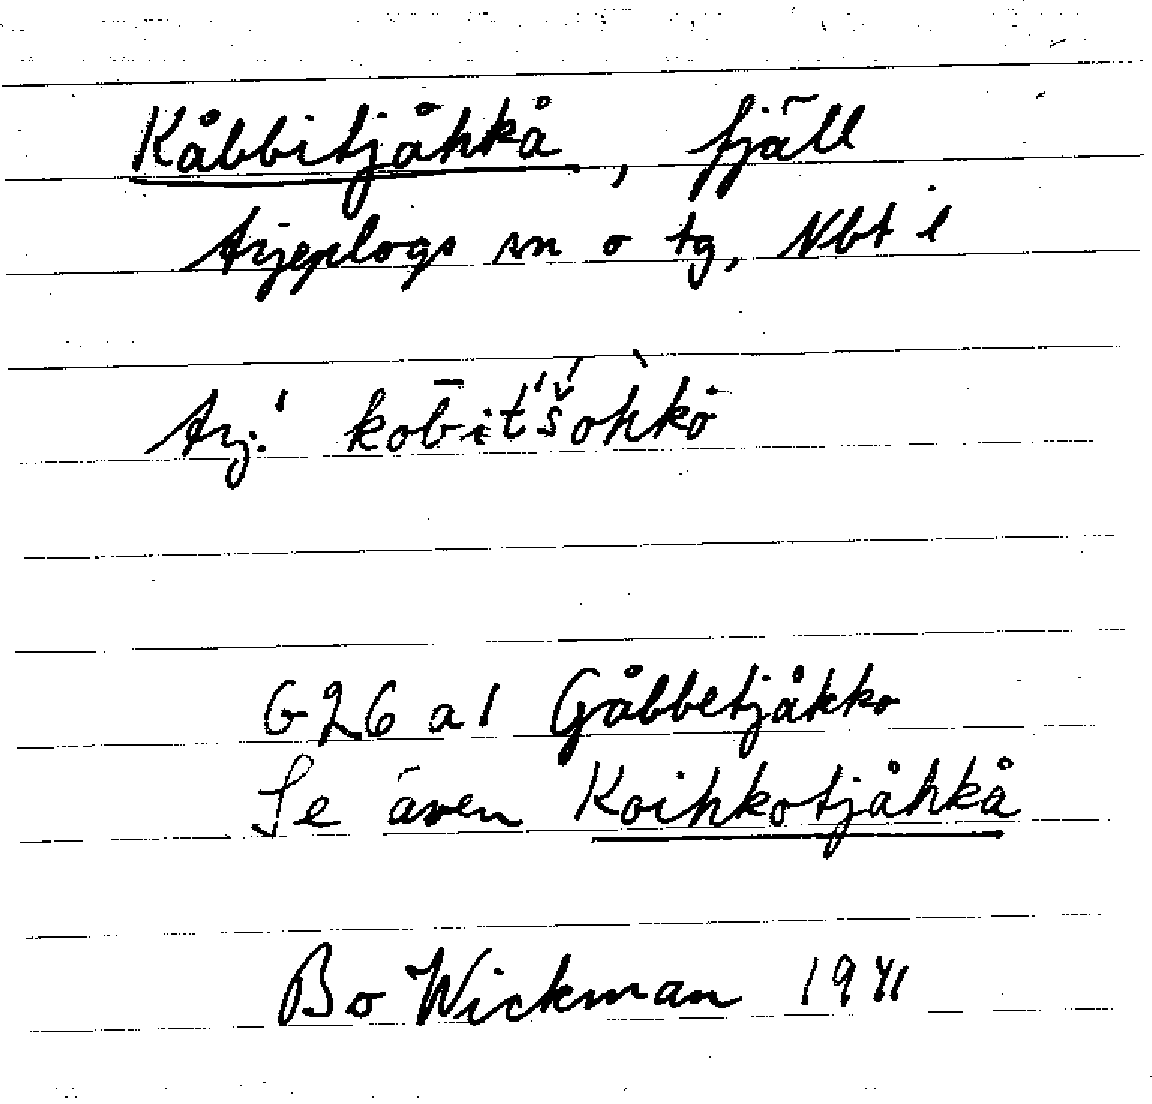 Kåbbitjåhkå, fjäll
Arjeplogs sn o tg, Nbt l
Arj.
G26 a1 Gåbbetjåkko
Se även Koihkotjåhkå
Bo Wickman 1941